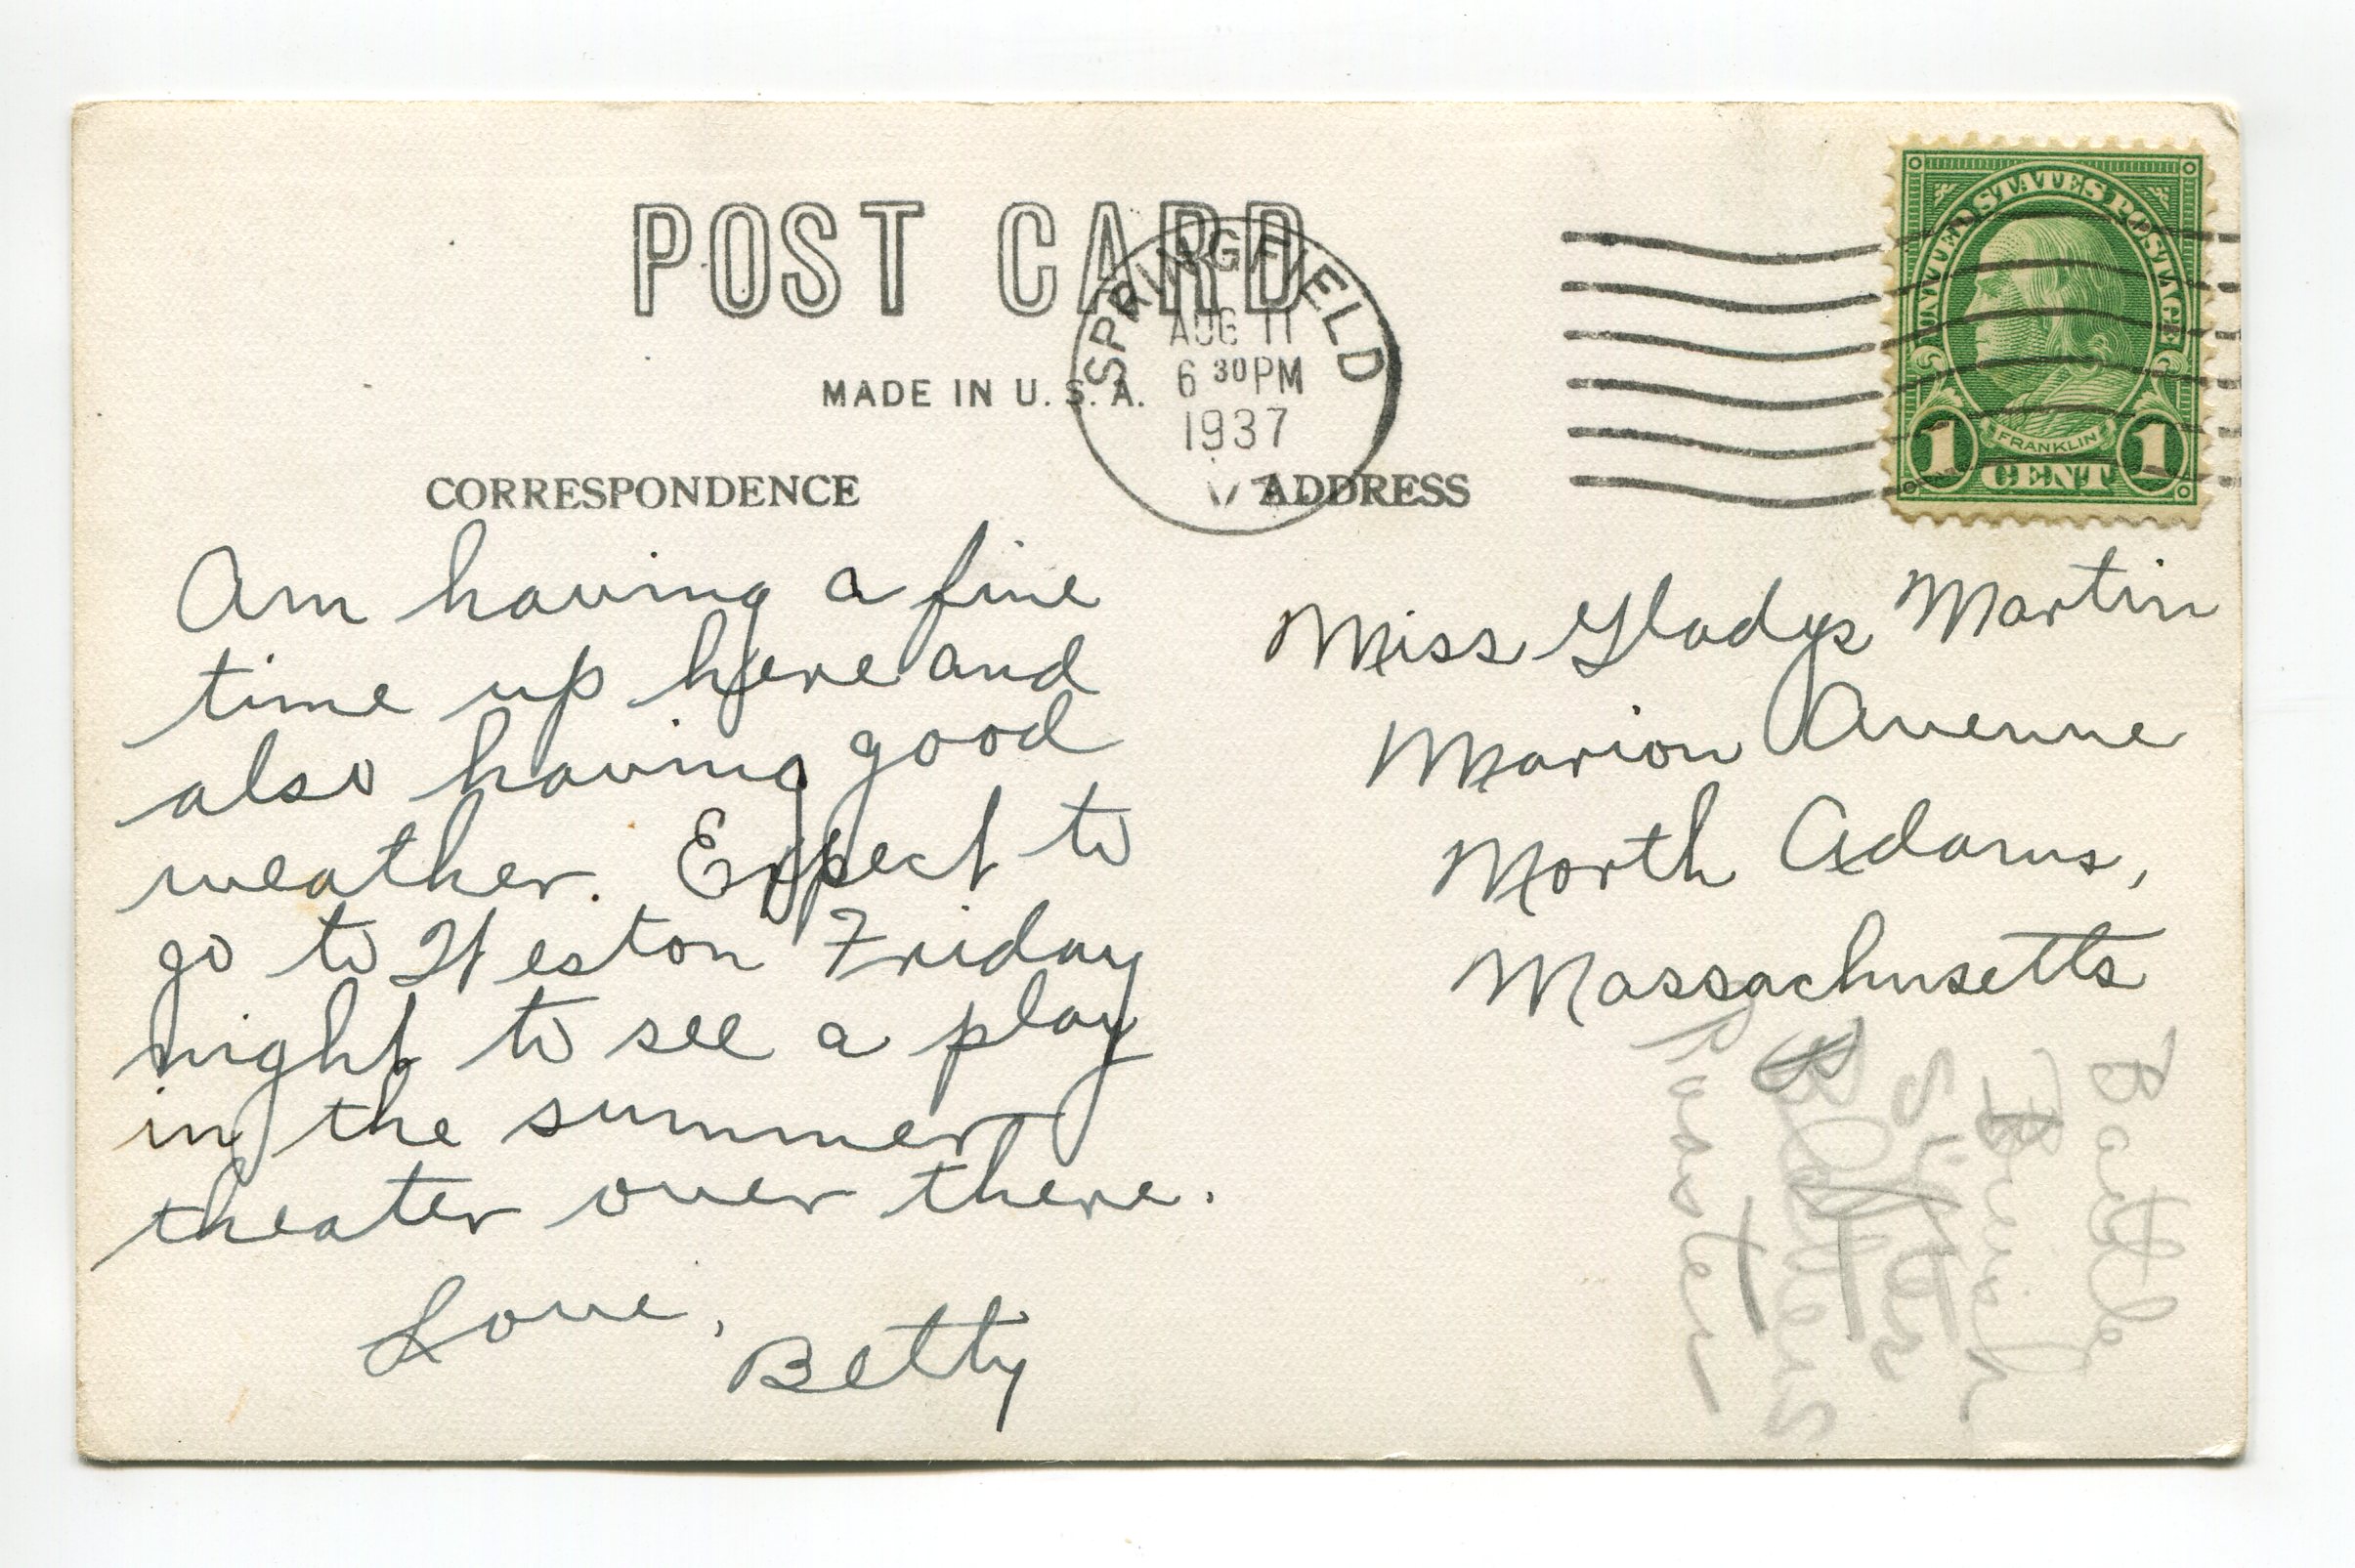 POST CARD
MADE IN U.S.A.
SPRINGFIELD
AUG 11
6 30 PM
1937
VT.
UNITED STATES POSTAGE
FRANKLIN
1 CENT 1
CORRESPONDENCE
ADDRESS
Am having a fine
time up here and
also having good
weather. Expect to
go to Weston Friday
night to see a play
in the summer
theater over there.
Love,
Betty
Miss Gladys Martin
Marion Avenue
North Adams,
Massachusetts
Battle